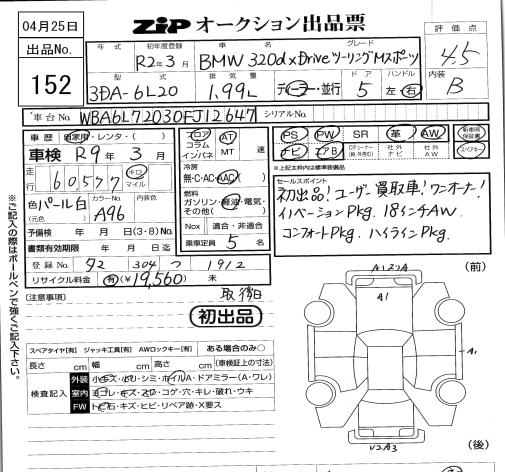 04月25日
ZIP オークション出品票
出品No.
152
年式
初年度登録
車名
グレード
R2年3月
BMW 320d xDriveツーリングMスポーツ
型式
排気量
ドア
ハンドル
3DA-6L20
1.99L
ディーラー・並行
5
左・右
評価点
4.5
内装
B
車台No
WBA6L72030FJ12647
シリアルNo.
車歴
自家用・レンタ・( )
車検 R9年3月
走行
60,577
キロ
マイル
色 パール白
(元色)
カラーNo.
A96
内装色
予備検 年 月 日(3・8)No.
書類有効期限 年 月 日迄
登録No. 92 304 つ 1912
リサイクル料金 有(¥19,560) 未
フロア
コラム
インパネ
AT
MT
速
冷房
無・C・AC・AAC
燃料
ガソリン・軽油・電気・
その他( )
Nox 適合・非適合
乗車定員 5 名
PS PW SR 革 AW
新車時保証書
ナビ エアB
社外ナビ
社外AW
スペアキー
※上記太枠内は標準装備品
セールスポイント
初出品! ユーザー買取車! ワンオーナー!
イノベーションPkg. 18インチAW
コンフォートPkg. ハイラインPkg.
※ご記入の際はボールペンで強くご記入下さい。
[注意事項]
取後日
初出品
スペアタイヤ[有] ジャッキ工具[有] AWロックキー[有] ある場合のみ○
長さ cm 幅 cm 高さ cm (車検証上の寸法)
検査記入
外装 小キズ・凹・シミ・ホイルA・ドアミラー(A・ワレ)
室内 ヨゴレ・キズ・スレ・コゲ・穴・キレ・破れ・ウキ
FW トビ石・キズ・ヒビ・リペア跡・X要ス
(前)
A1
A1
(後)